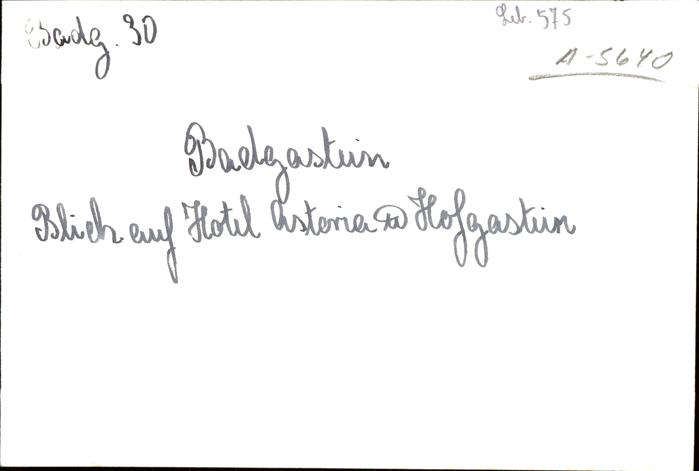 Badg. 30
Leb. 575
A-5640
Badgastein
Blick auf Hotel Astoria u Hofgastein